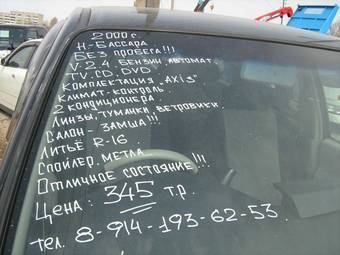 2000 г
Н-БАССАРА
БЕЗ ПРОБЕГА!!!
V. 2.4 БЕНЗИН, АВТОМАТ.
TV. CD. DVD.
КОМПЛЕКТАЦИЯ "AXIS"
КЛИМАТ-КОНТРОЛЬ.
2 КОНДИЦИОНЕРА
ЛИНЗЫ, ТУМАНКИ, ВЕТРОВИКИ.
САЛОН - ЗАМША!!!
ЛИТЬЁ R-16.
СПОЙЛЕР, МЕТЛА.
ОТЛИЧНОЕ СОСТОЯНИЕ!!!
ЦЕНА: 345 Т.Р.
тел. 8-914-193-62-53.